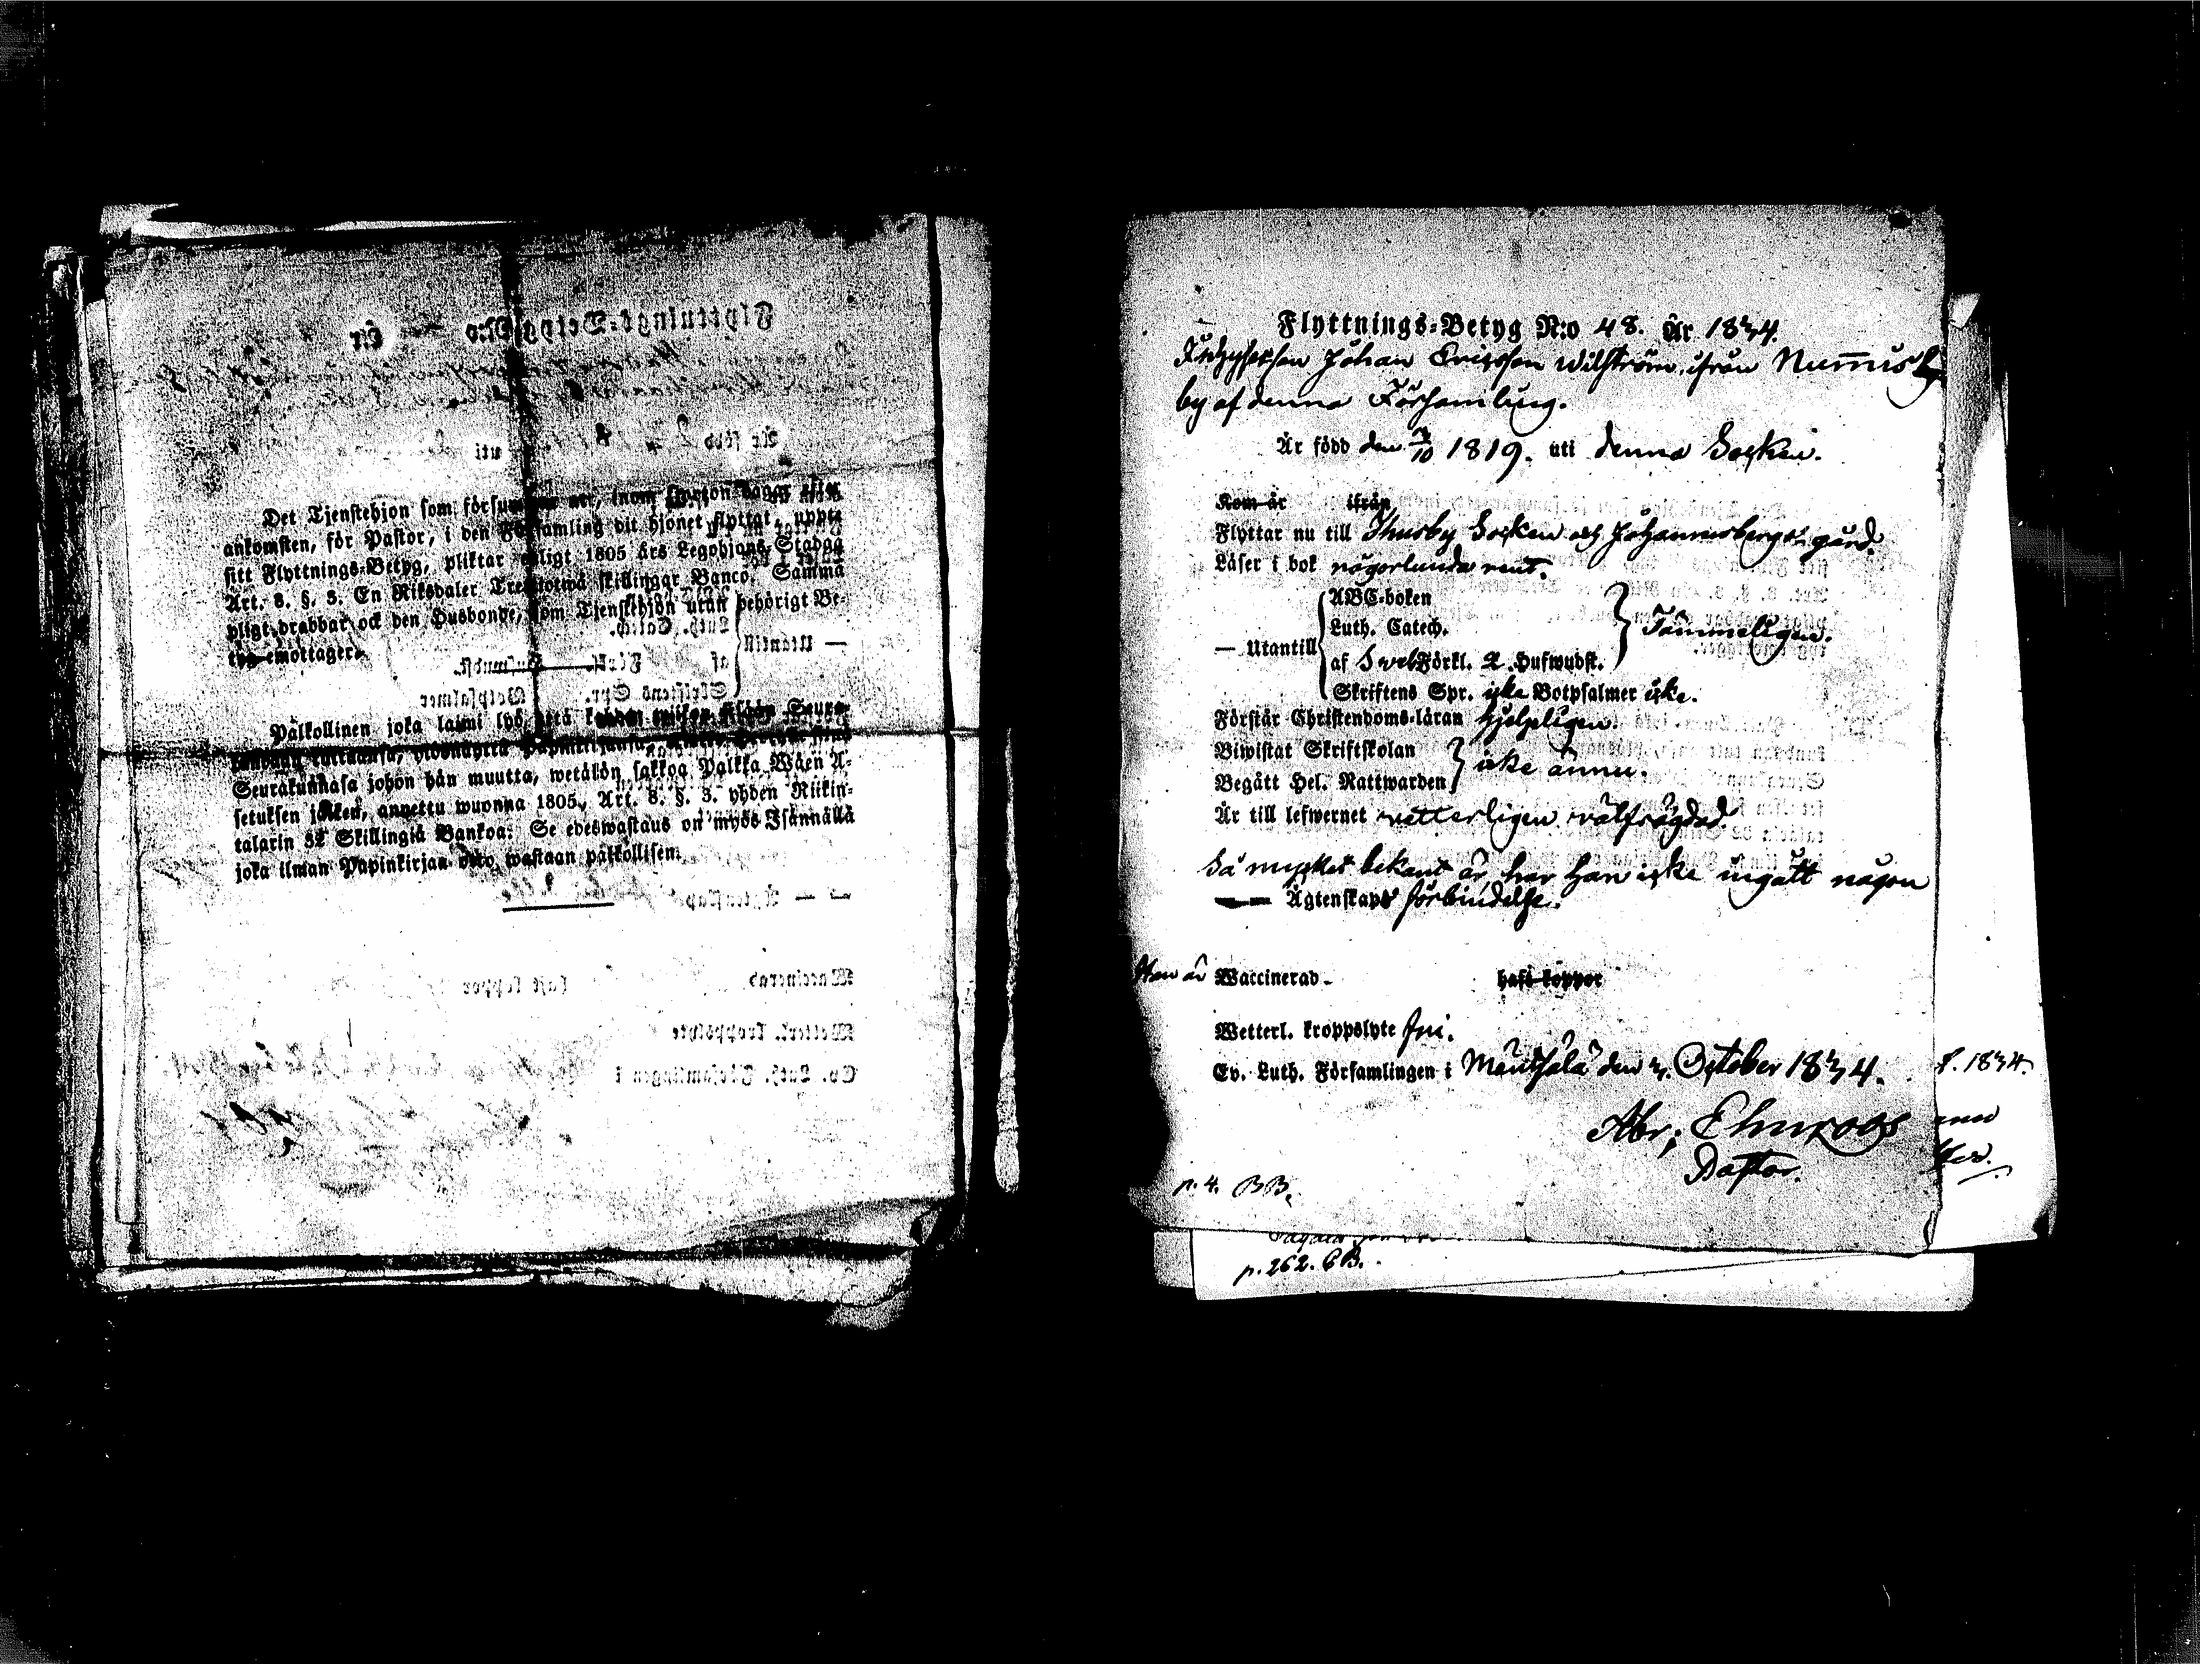 Det Tjenstehjon som försummar at, inom fjorton dagar efter
ankomsten, för Pastor, i den Församling dit hjonet flyttat, uppte
sitt Flyttnings-Betyg, pliktar enligt 1805 års Legohjons Stadga
Art. 8. §. 3. En Riksdaler Trettiotwå skillingar Banco. Samma
pligt drabbar ock den Husbonde, som Tjenstehjon utan behörigt Be-
tyg emottager.
Pälkollinen joka laimi lyö, että
Seurakunnasa johon hän muutta, wetäkön sakkoa Palkka Wäen A-
setuksen jälken, annettu wuonna 1805, Art. 8. §. 3. yhden Riikin-
talarin 32 Skillingiä Bankoa. Se edeswastaus on myös Isännällä
joka ilman Papinkirjaa otto wastaan pälkollisen.
Flyttnings-Betyg N:o 48. År 1834.
Johan Ericsson Wilström ifrån
by af denna Församling.
Är född den 7/10 1819. uti denna Socken.
Kom år ifrån
Flyttar nu till Thusby Socken och Johannesbergs gård.
Läser i bok någorlunda rent.
— Utantill
ABC-boken
Luth. Catech.
af Sveb Förkl. 2. Hufwudst.
Tämmeligen.
Skriftens Spr. icke Botpsalmer icke.
Förstår Christendoms-läran hjelpligen.
Biwistat Skriftskolan
Begått Hel. Nattwarden
icke ännu.
Är till lefwernet vetterligen välfrägdad.
Så mycket bekant är, har han icke ingått någon
Ägtenskaps förbindelse.
Han är Waccinerad. haft koppor
Wetterl. kroppslyte fri.
Ev. Luth. Församlingen i Mäntsälä den 3. October 1834.
Abr: Elmgroos
Pastor.
p. 4. BB.
f. 1834.
p. 262. CB.